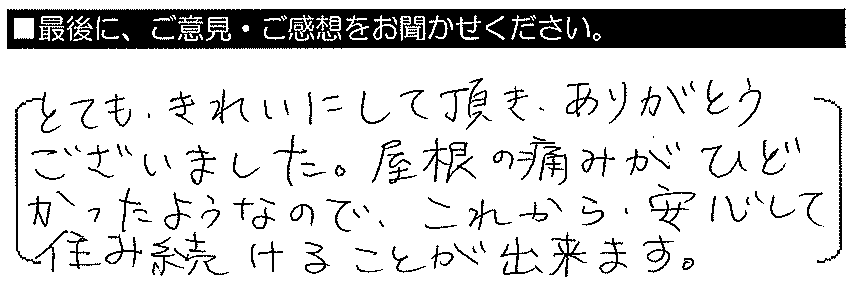 ■最後に、ご意見・ご感想をお聞かせください。
とても、きれいにして頂き、ありがとう
ございました。屋根の痛みがひど
かったようなので、これから、安心して
住み続けることが出来ます。